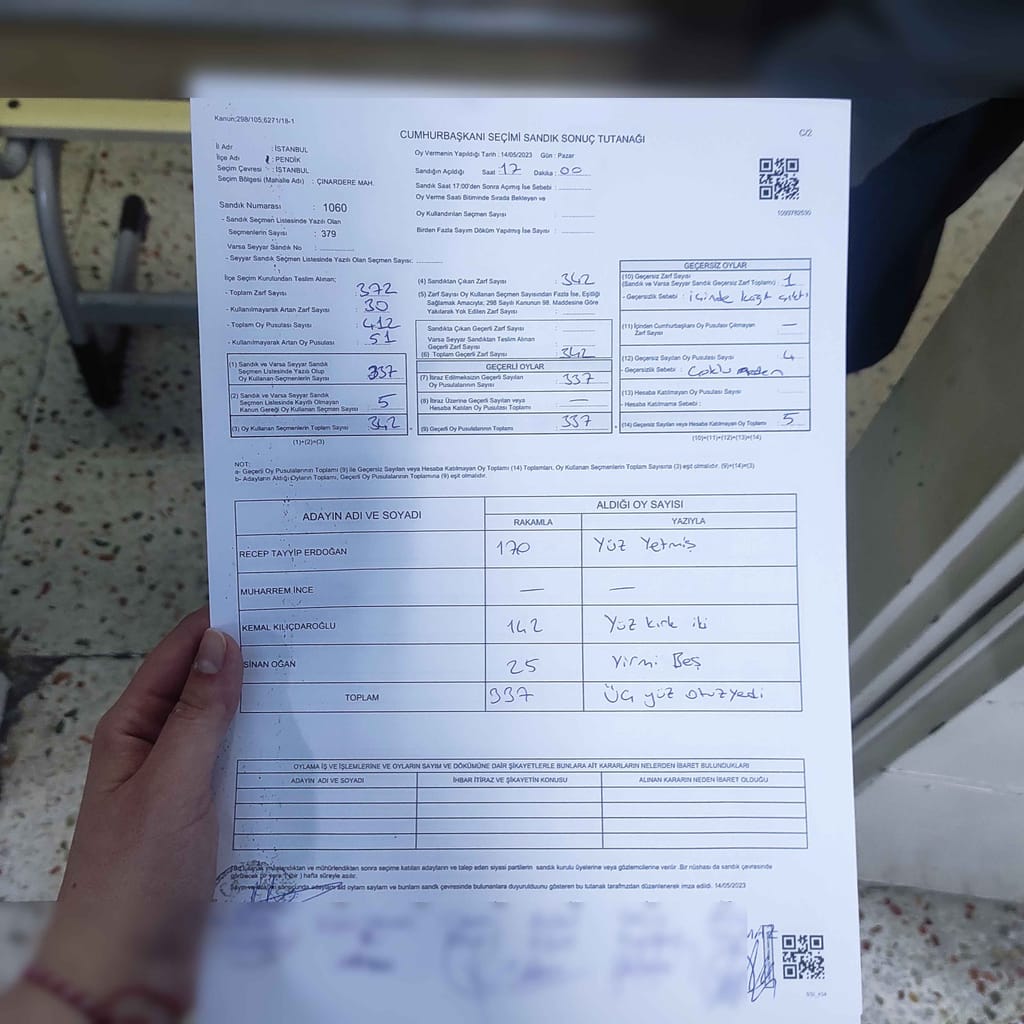 Kanun;298/105;6271/18-1
CUMHURBAŞKANI SEÇİMİ SANDIK SONUÇ TUTANAĞI
C/2
İl Adı : İSTANBUL
İlçe Adı : PENDİK
Seçim Çevresi : İSTANBUL
Seçim Bölgesi (Mahalle Adı) : ÇINARDERE MAH.
Oy Vermenin Yapıldığı Tarih : 14/05/2023 Gün : Pazar
Sandığın Açıldığı Saat 17 Dakika : 00
Sandık Saat 17:00'den Sonra Açımış İse Sebebi :
Oy Verme Saati Bitiminde Sırada Bekleyen ve
Oy Kullandırılan Seçmen Sayısı :
Birden Fazla Sayım Döküm Yapılmış İse Sayısı :
Sandık Numarası : 1060
- Sandık Seçmen Listesinde Yazılı Olan
Seçmenlerin Sayısı : 379
Varsa Seyyar Sandık No :
- Seyyar Sandık Seçmen Listesinde Yazılı Olan Seçmen Sayısı:
İlçe Seçim Kurulundan Teslim Alınan;
- Toplam Zarf Sayısı : 372
- Kullanılmayarak Artan Zarf Sayısı : 30
- Toplam Oy Pusulası Sayısı : 412
- Kullanılmayarak Artan Oy Pusulası Sayısı : 51
(1) Sandık ve Varsa Seyyar Sandık
Seçmen Listesinde Yazılı Olup
Oy Kullanan Seçmenlerin Sayısı : 337
(2) Sandık ve Varsa Seyyar Sandık
Seçmen Listesinde Kayıtlı Olmayan
Kanun Gereği Oy Kullanan Seçmen Sayısı : 5
(3) Oy Kullanan Seçmenlerin Toplam Sayısı : 342
(1)+(2)=(3)
(4) Sandıktan Çıkan Zarf Sayısı : 342
(5) Zarf Sayısı Oy Kullanan Seçmen Sayısından Fazla İse, Eşitliği
Sağlamak Amacıyla; 298 Sayılı Kanunun 98. Maddesine Göre
Yakılarak Yok Edilen Zarf Sayısı :
Sandıkta Çıkan Geçerli Zarf Sayısı :
Varsa Seyyar Sandıktan Teslim Alınan
Geçerli Zarf Sayısı :
(6) Toplam Geçerli Zarf Sayısı : 342
GEÇERLİ OYLAR
(7) İtiraz Edilmeksizin Geçerli Sayılan
Oy Pusulalarının Sayısı : 337
(8) İtiraz Üzerine Geçerli Sayılan veya
Hesaba Katılan Oy Pusulası Toplamı : —
(9) Geçerli Oy Pusulalarının Toplamı : 337
GEÇERSİZ OYLAR
(10) Geçersiz Zarf Sayısı
(Sandık ve Varsa Seyyar Sandık Geçersiz Zarf Toplamı) : 1
- Geçersizlik Sebebi : içinde kağıt çıktı
(11) İçinden Cumhurbaşkanı Oy Pusulası Çıkmayan
Zarf Sayısı : —
(12) Geçersiz Sayılan Oy Pusulası Sayısı : 4
- Geçersizlik Sebebi :
(13) Hesaba Katılmayan Oy Pusulası Sayısı :
- Hesaba Katılmama Sebebi :
(14) Geçersiz Sayılan veya Hesaba Katılmayan Oy Toplamı : 5
(10)+(11)+(12)+(13)=(14)
NOT:
a- Geçerli Oy Pusulalarının Toplamı (9) ile Geçersiz Sayılan veya Hesaba Katılmayan Oy Toplamı (14) Toplamları, Oy Kullanan Seçmenlerin Toplam Sayısına (3) eşit olmalıdır. (9)+(14)=(3)
b- Adayların Aldığı Oyların Toplamı, Geçerli Oy Pusulalarının Toplamına (9) eşit olmalıdır.
ADAYIN ADI VE SOYADI ALDIĞI OY SAYISI
RAKAMLA YAZIYLA
RECEP TAYYİP ERDOĞAN 170 Yüz Yetmiş
MUHARREM İNCE — —
KEMAL KILIÇDAROĞLU 142 Yüz kırk iki
SİNAN OĞAN 25 Yirmi Beş
TOPLAM 337 Üç yüz otuzyedi
OYLAMA İŞ VE İŞLEMLERİNE VE OYLARIN SAYIM VE DÖKÜMÜNE DAİR ŞİKAYETLERLE BUNLARA AİT KARARLARIN NELERDEN İBARET BULUNDUKLARI
ADAYIN ADI VE SOYADI İHBAR İTİRAZ VE ŞİKAYETİN KONUSU ALINAN KARARIN NEDEN İBARET OLDUĞU
sonra seçime katılan adayların ve talep eden siyasi partilerin sandık kurulu üyelerine veya gözlemcilerine verilir. Bir nüshası da sandık çevresinde
hafta süreyle asılır.
oylam sayılarını ve bunların sandık çevresinde bulunanlara duyurulduğunu gösteren bu tutanak tarafımızdan düzenlenerek imza edildi. 14/05/2023